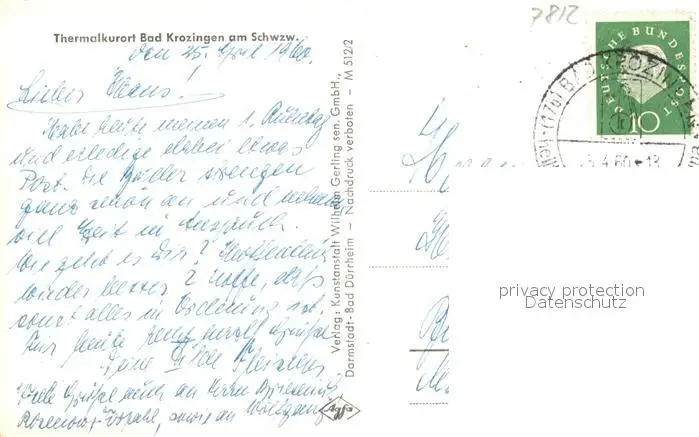 Thermalkurort Bad Krozingen am Schwzw.
den 25. April 1960.
Lieber Klaus!
Habe heute meinen 1. Ruhetag
und erledige dabei etwas
Post. Die Bäder strengen
ganz schön an und nehmen
viel Zeit in Anspruch.
Wie geht es Dir? Hoffentlich
wieder besser? Hoffe, daß
sonst alles in Ordnung ist.
Für heute recht herzl. Grüße
Deine
Viele Grüße auch an Herrn
sowie an Wolfgang
Verlag: Kunstanstalt Wilhelm Gerling sen. GmbH,
Darmstadt - Bad Dürrheim — Nachdruck verboten — M 512/2
Agfa
7812
DEUTSCHE BUNDESPOST
10
(17b) BAD KROZINGEN
.4.60-18
privacy protection
Datenschutz